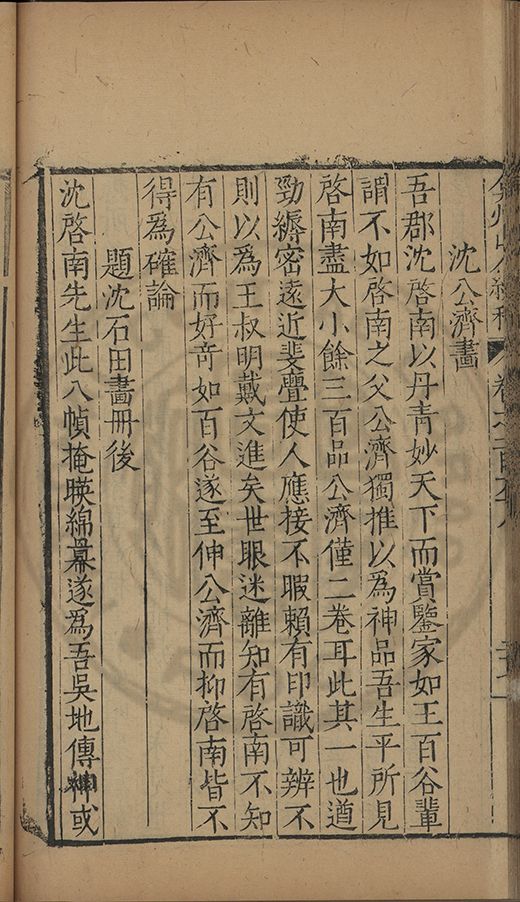 弇州山人續稿 卷
沈公濟畫
吾郡沈啓南以丹青妙天下而賞鑒家如王百谷輩
謂不如啓南之父公濟獨推以爲神品吾生平所見
啓南盡大小餘三百品公濟僅二卷耳此其一也遒
勁縟密遠近斐疊使人應接不暇賴有印識可辨不
則以爲王叔明戴文進矣世眼迷離知有啓南不知
有公濟而好竒如百谷遂至伸公濟而抑啓南皆不
得爲確論
題沈石田畫冊後
沈啓南先生此八幀掩暎綿冪遂爲吾吳地傳神或